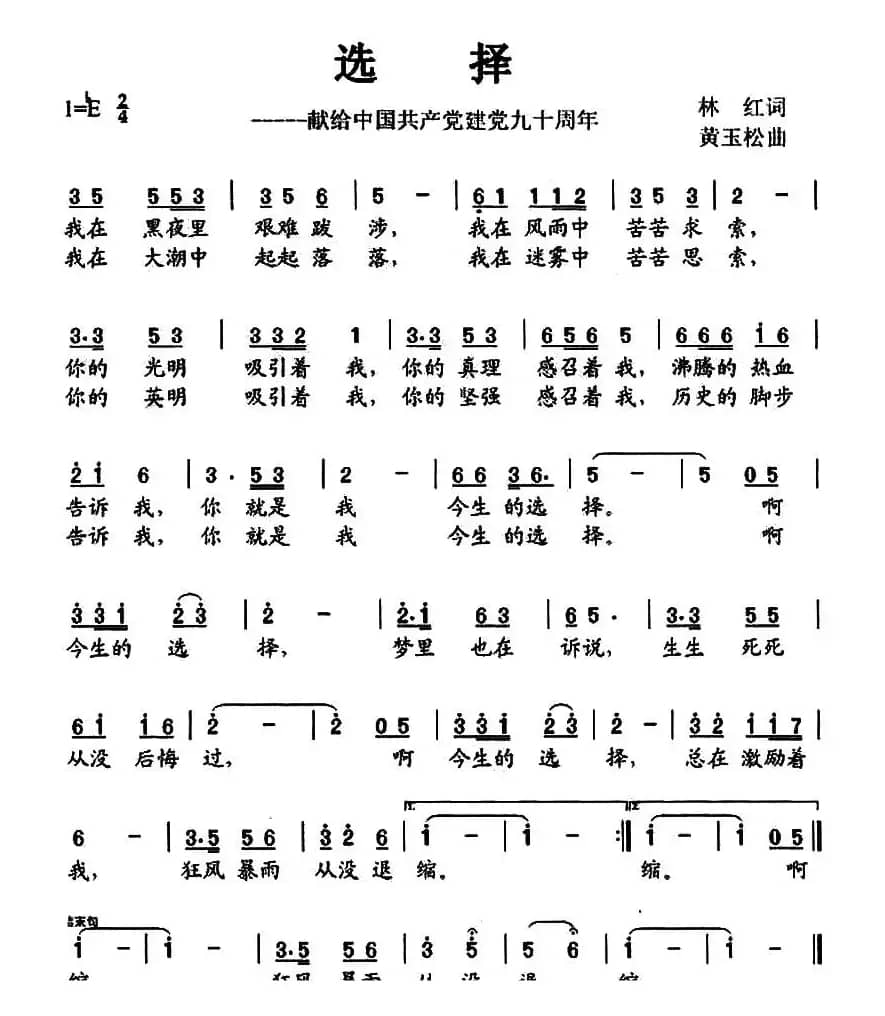 选 择
1=♭E 2/4
-----献给中国共产党建党九十周年
林 红词
黄玉松曲
3 5 5 5 3 | 3 5 6 | 5 - | 6 1 1 1 2 | 3 5 3 | 2 - |
我在 黑夜里 艰难 跋 涉, 我在 风雨中 苦苦 求 索,
我在 大潮中 起起 落 落, 我在 迷雾中 苦苦 思 索,
3·3 5 3 | 3 3 2 1 | 3·3 5 3 | 6 5 6 5 | 6 6 6 i 6 |
你的 光明 吸引着 我, 你的 真理 感召着 我, 沸腾的 热血
你的 英明 吸引着 我, 你的 坚强 感召着 我, 历史的 脚步
2 i 6 | 3· 5 3 | 2 - | 6 6 3 6· | 5 - | 5 0 5 |
告诉 我, 你 就是 我 今生 的选 择。 啊
告诉 我, 你 就是 我 今生 的选 择。 啊
3 3 i 2 3 | 2 - | 2·i 6 3 | 6 5· | 3·3 5 5 |
今生的 选 择, 梦里 也在 诉说, 生生 死死
6 i i 6 | 2 - | 2 0 5 | 3 3 i 2 3 | 2 - | 3 2 i i 7 |
从没 后悔 过, 啊 今生的 选 择, 总在 激励着
1. 2.
6 - | 3·5 5 6 | 3 2 6 | i - | i - :‖ i - | i 0 5 ‖
我, 狂风 暴雨 从没 退 缩。 缩。 啊
结束句
i - | i - | 3·5 5 6 | 3 5 | 5 6 | i - | i - ‖
缩 狂风 暴雨 从 没 退 缩